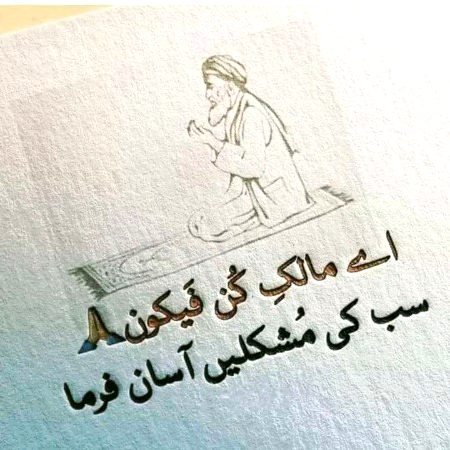 اے مالکِ کُن فَیکون🙏
سب کی مُشکلیں آسان فرما